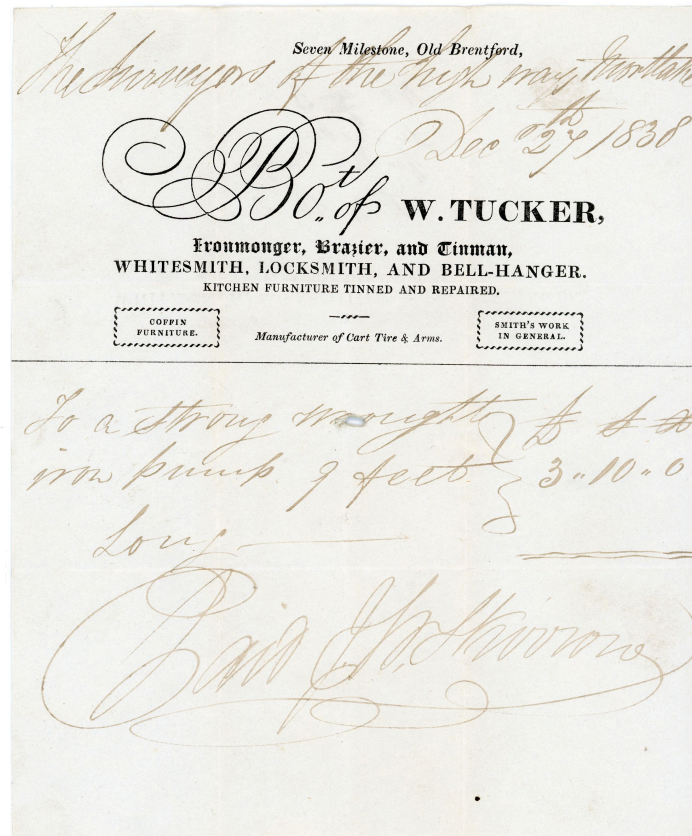 Seven Milestone, Old Brentford,
The Surveyors of the high way Mortlake
Dec 27th 1838
Bot. of W. TUCKER,
Ironmonger, Brazier, and Tinman,
WHITESMITH, LOCKSMITH, AND BELL-HANGER.
KITCHEN FURNITURE TINNED AND REPAIRED.
COFFIN
FURNITURE.
Manufacturer of Cart Tire & Arms.
SMITH'S WORK
IN GENERAL.
To a strong wrought £ s d
iron pump 9 feet 3 " 10 " 0
Long
Paid